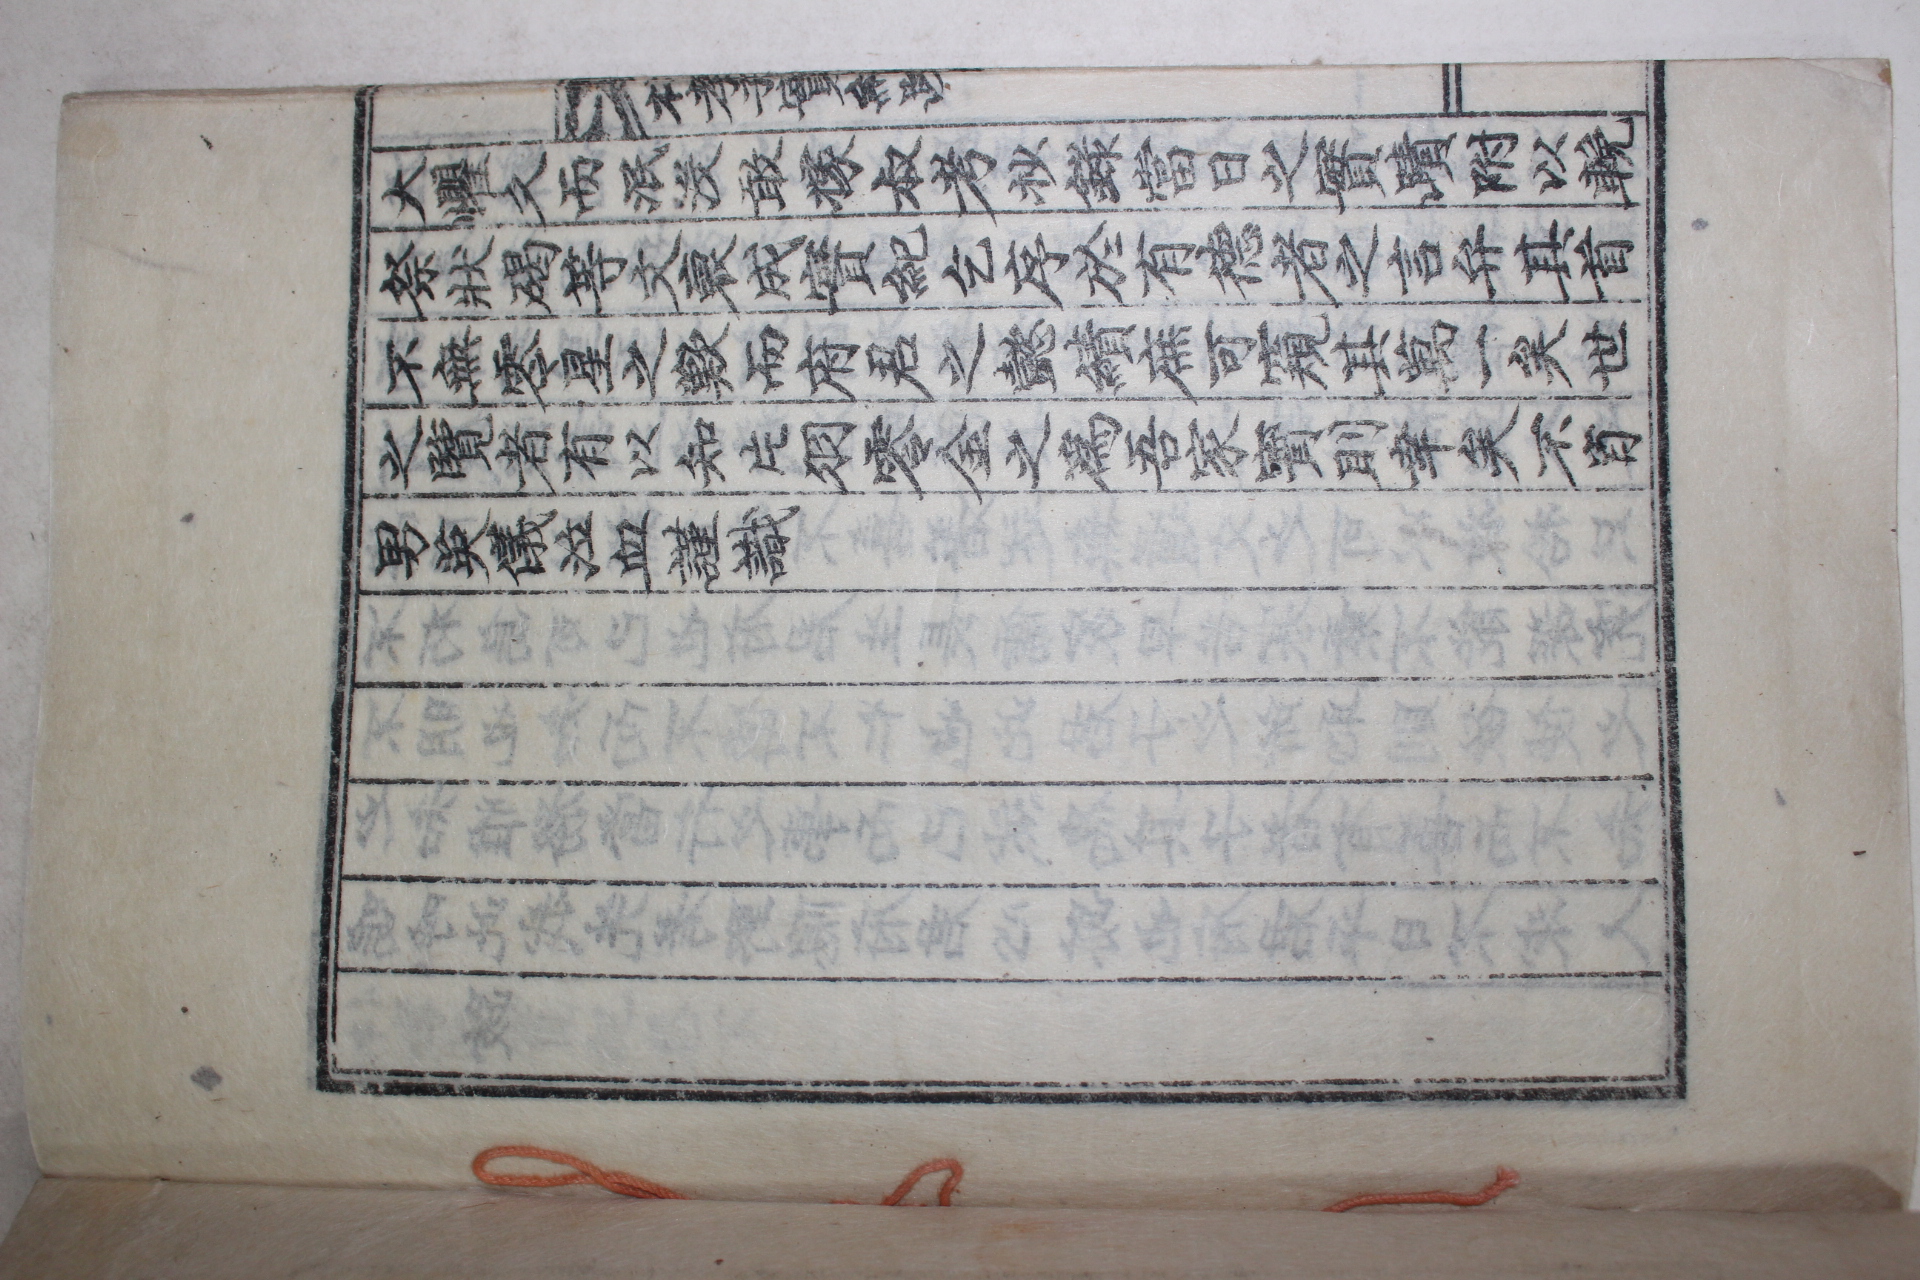 孝子實紀跋
大懼久而泯沒敢據叔考抄錄當日之實蹟附以輓
祭狀碣等文裒成實紀乞序於有德者之言弁其首
不無零星之歎而府君之懿績庶可窺其萬一矣世
之覽者有以知片羽零金之爲吾家寶則幸矣不肖
男英儀泣血謹識